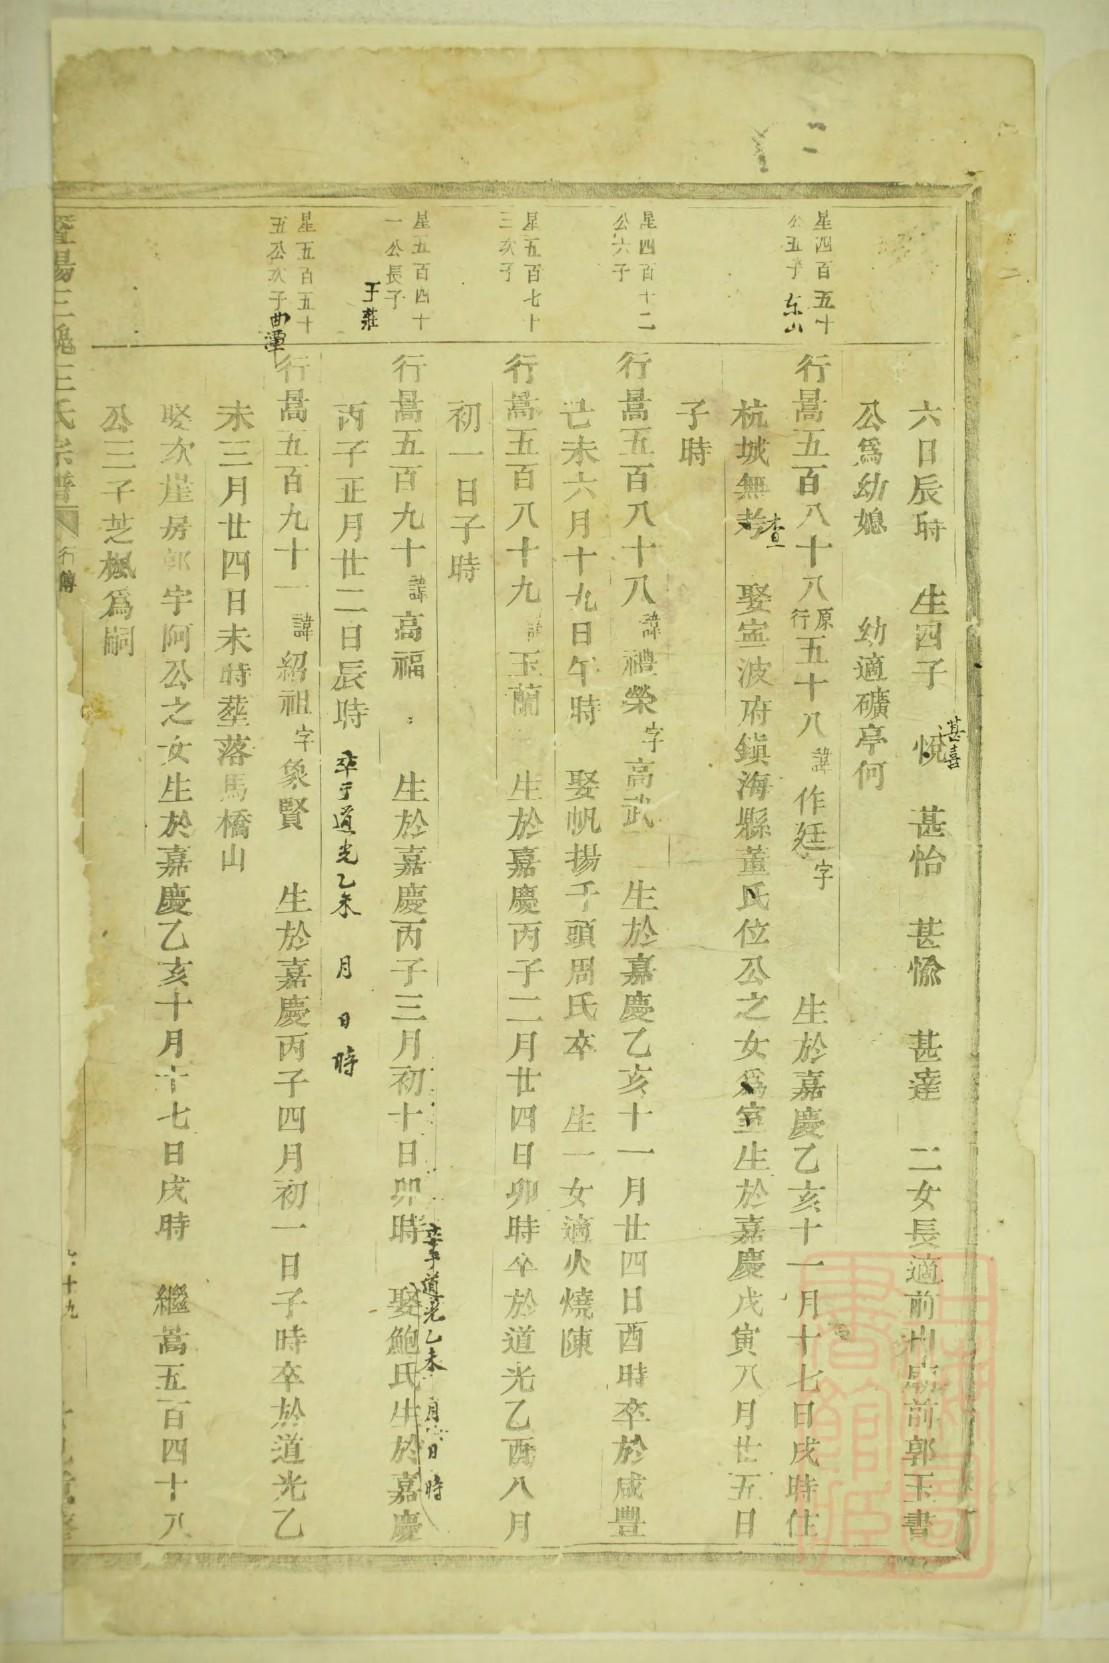 六日辰時 生四子 悅 甚怡 甚愉 甚達 二女長適前州廟前郭玉書
甚喜
公為幼媳 幼適礦亭何
星四百五十
公五子 东山
行暠五百八十八原行五十八諱作廷字 生於嘉慶乙亥十一月十七日戌時住
杭城無考 娶寧波府鎮海縣董氏位公之女為室生於嘉慶戊寅八月廿五日
查
子時
星四百十二
公六子
行暠五百八十八諱禮榮字高武 生於嘉慶乙亥十一月廿四日酉時卒於咸豐
己未六月十九日午時 娶帆揚千頭周氏卒 生一女適火燒陳
星五百七十
三次子
行暠五百八十九諱玉蘭 生於嘉慶丙子二月廿四日卯時卒於道光乙酉八月
初一日子時
星五百四十
一公長子
于莊
行暠五百九十諱高福 生於嘉慶丙子三月初十日卯時 娶鮑氏生於嘉慶
卒于道光乙未 月 日 時
丙子正月廿二日辰時 卒于道光乙未 月 日 時
星五百五十
五公次子曲潭
行暠五百九十一諱紹祖字象賢 生於嘉慶丙子四月初一日子時卒於道光乙
未三月廿四日未時塟落馬橋山
娶次崖房郭宇阿公之女生於嘉慶乙亥十月十七日戌時 繼暠五百四十八
公三子芝楓為嗣
暨陽三槐王氏宗譜 行傳 六十九